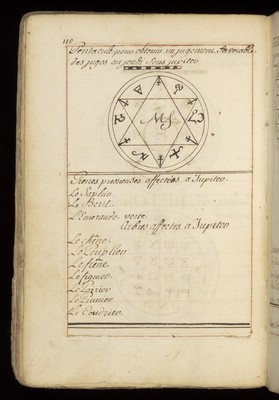 110
Pentacule pour obtenir un jugement favorable
des juges au jeudi sous jupiter
Pierres pretieuses affectées a Jupiter.
Le Saphir
Le Beril.
L'Emeraude verte
Arbres affectés a Jupiter
Le chêne
Le Peuplier
Le frêne
Le figuier
Le Poirier
Le Prunier
Le Coudrier